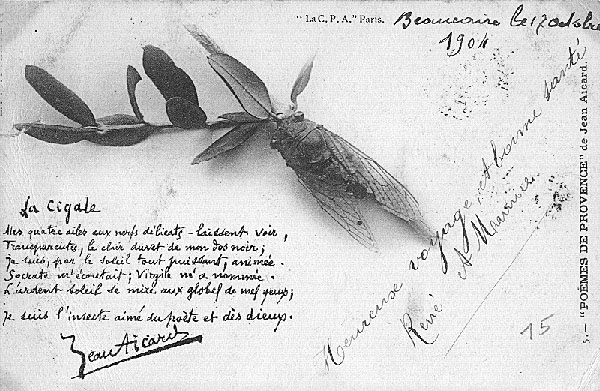 "La C. P. A." Paris.
Beaucaire le 17 octobre
1904
La Cigale
Mes quatre ailes aux nerfs délicats laissent voir,
Transparentes, le clair duvet de mon dos noir;
Je suis, par le soleil tout puissant, animée.
Socrate m'écoutait; Virgile m'a nommée.
L'ardent soleil se mire aux globes de mes yeux;
Je suis l'insecte aimé du poète et des dieux.
Jean Aicard
Heureux voyage et bonne santé
René A
75
5. — "POÈMES DE PROVENCE" de Jean Aicard.